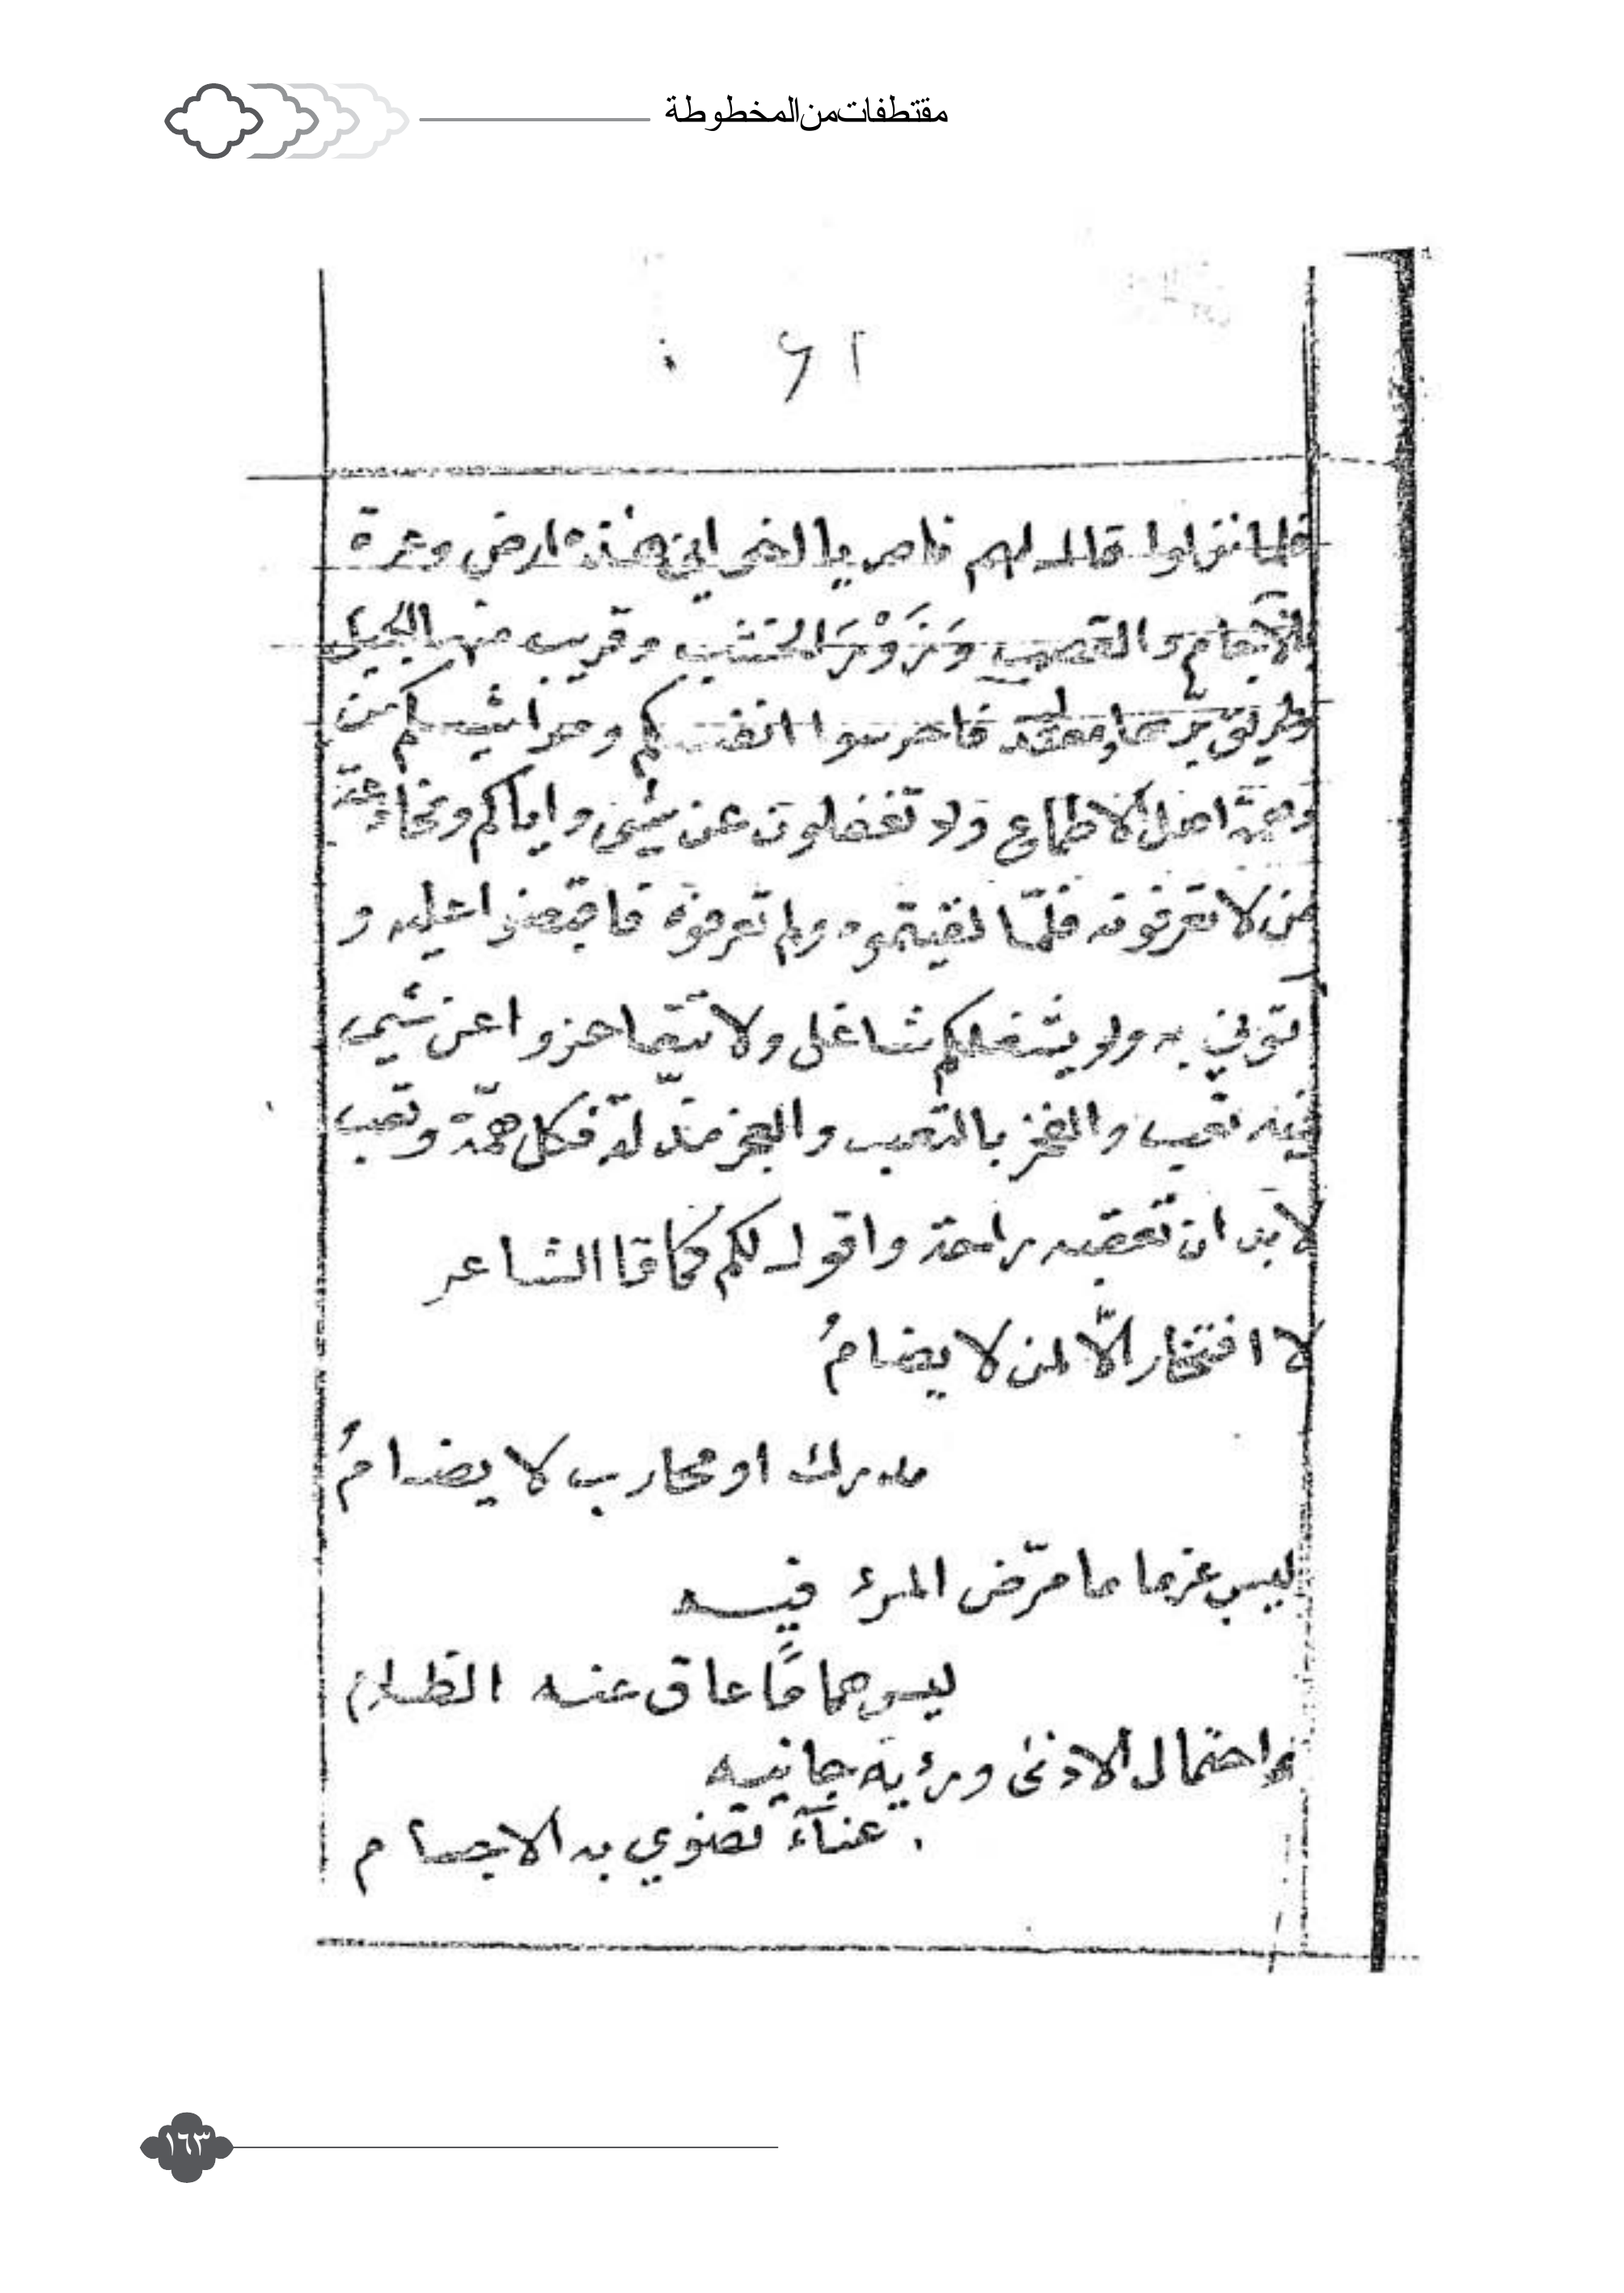 مقتطفات من المخطوطة
٦١
فلما نزلوا قال لهم ناصر يا اخواني هذه ارض وعرة
بالآجام والقصب وَزَوْرَ الخشب وقريب منها الجبل
وطريق بر فاحرسوا انفسكم ومواشيكم من
اهل الاطماع ولا تغفلون عن شيئ واياكم
من لا تعرفونه فلمّا لقيتموه ولم تعرفوه فاقبضوا عليه و
أتوني به ولا يشغلكم شاغل ولا تتعاجزوا عن شيئ
فيه تعب والفخز بالتعب والعجز مذلّة فكل همّة وتعب
لا بد ان تعقبه راحة واقول لكم كما قا الشاعر
لا افتخار الّا لمن لا يضامُ
مدرك او محارب لا يضامُ
ليس عزما ما مرّض المرء فيه
ليس همامًا عاق عنه الظلام
واحتمال الاذى ورءية جانيه
عنآء تضوي به الاجسام
١٦٣